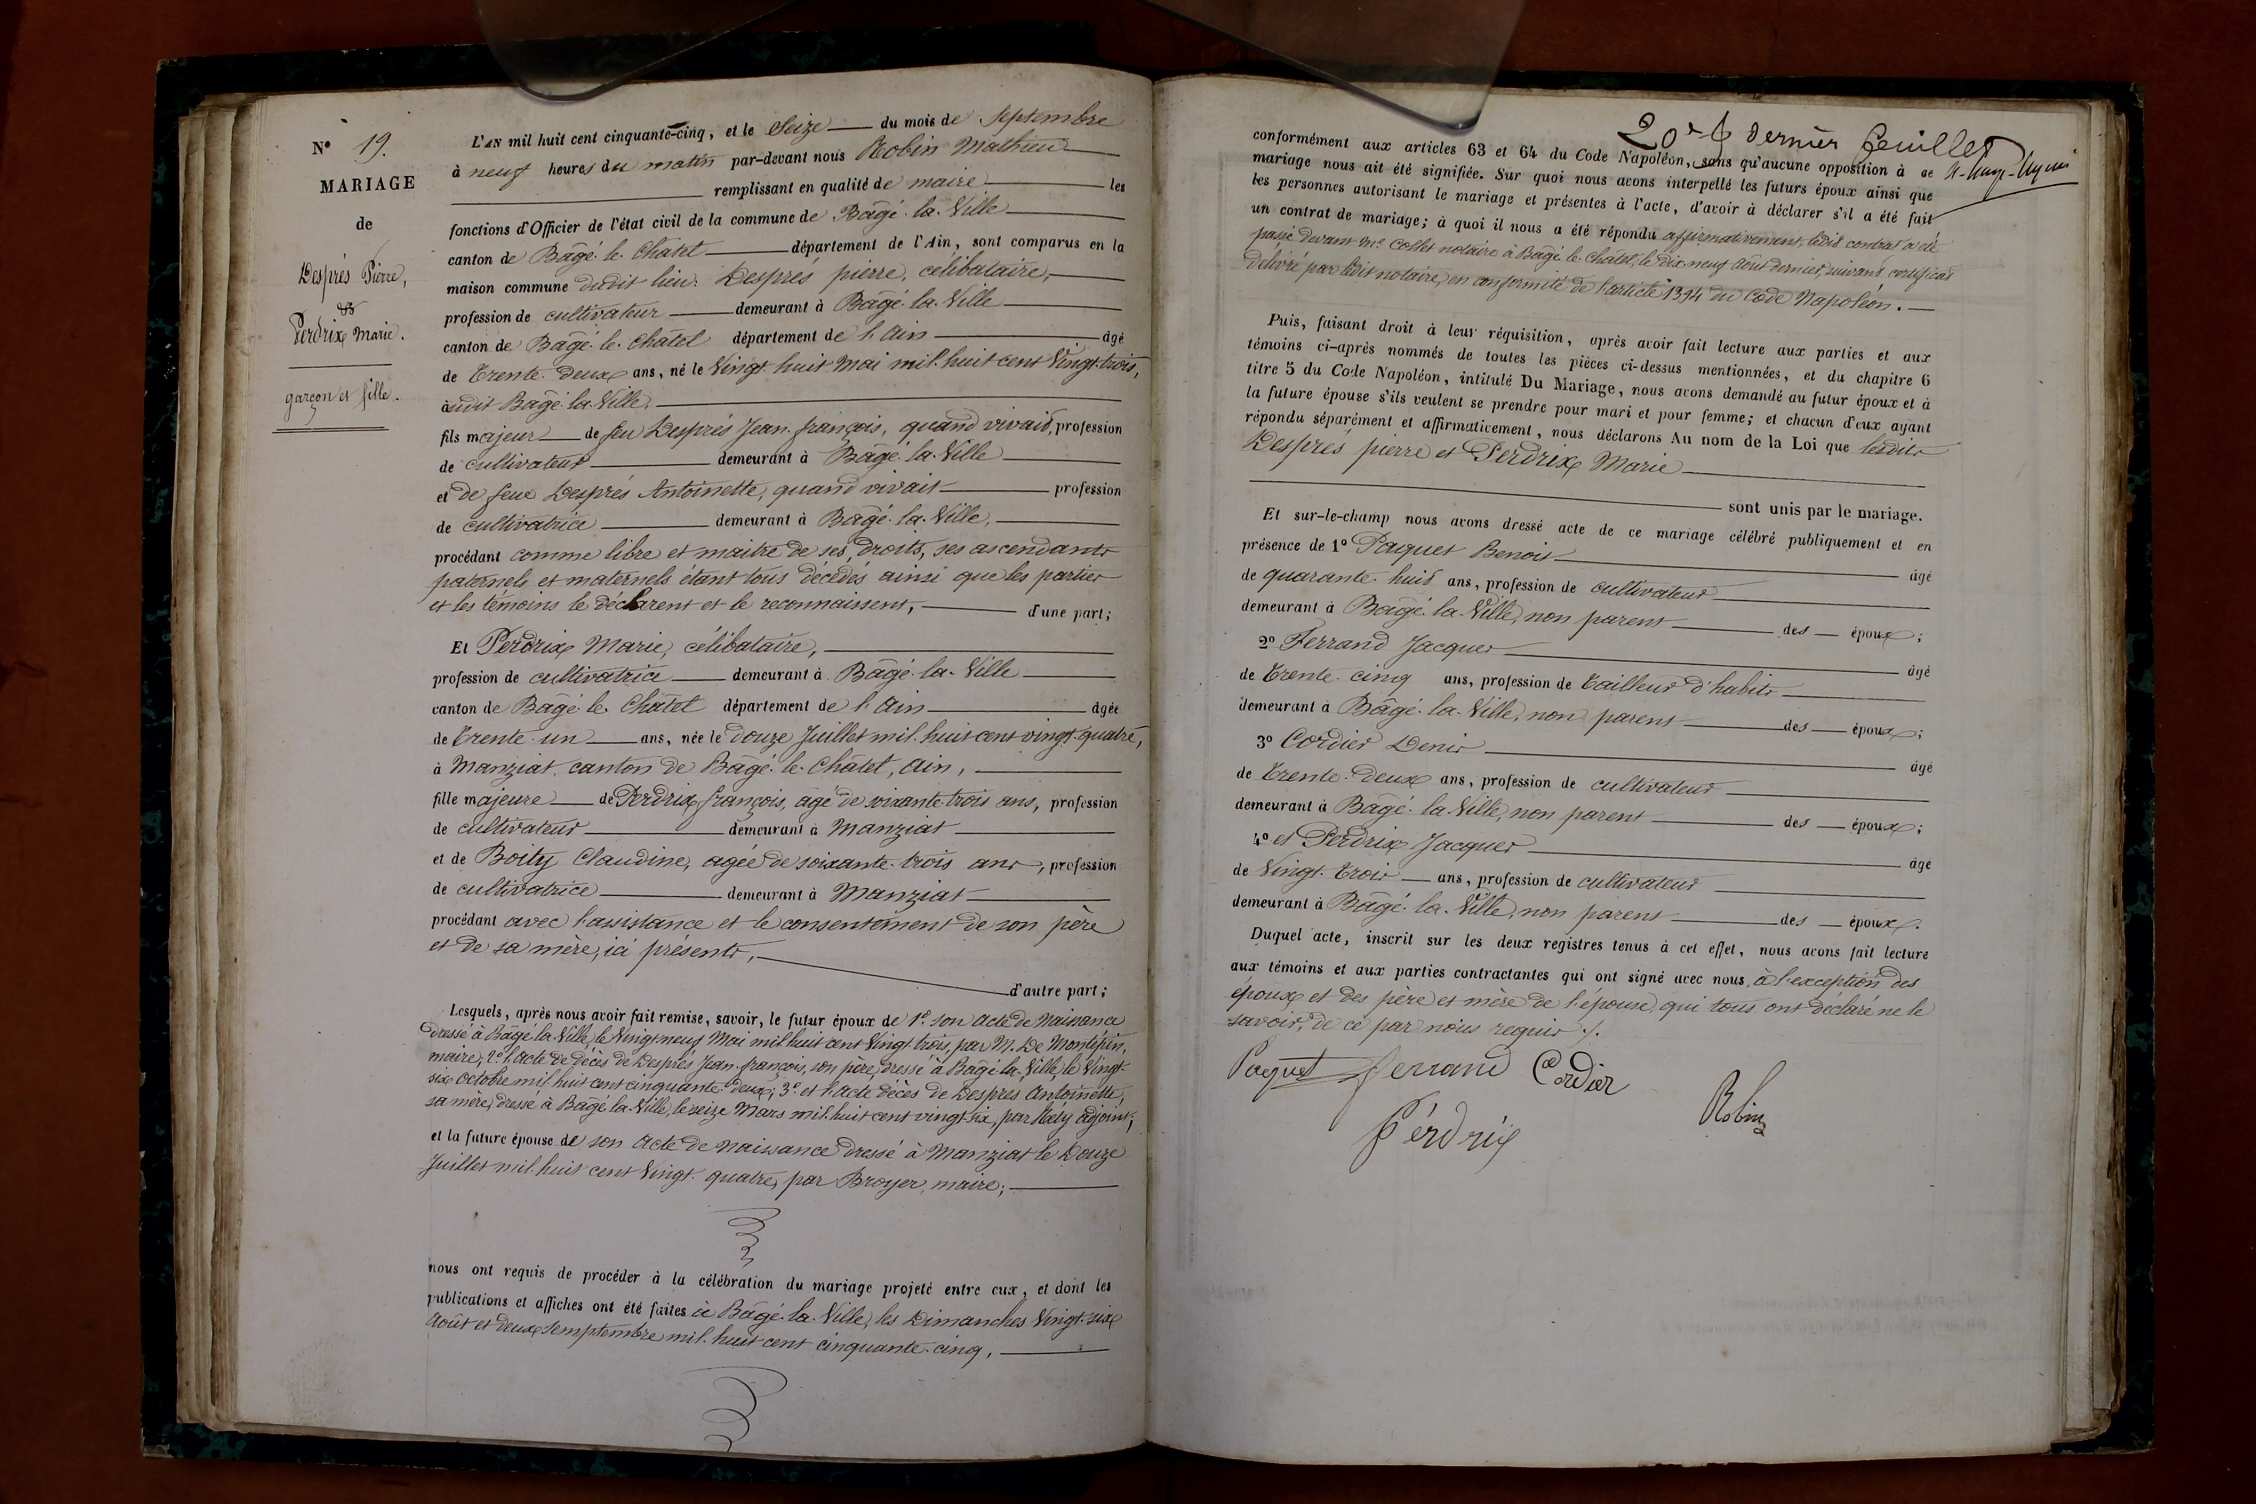 N° 19.
MARIAGE
de
Desprès Pierre,
&
Perdrix Marie.
garçon et fille.
L'AN mil huit cent cinquante-cinq, et le Seize du mois de Septembre
à neuf heures du matin par-devant nous Robin Mathieu
remplissant en qualité de maire les
fonctions d'Officier de l'état civil de la commune de Bâgé-la-Ville
canton de Bâgé-le-Châtel département de l'Ain, sont comparus en la
maison commune dudit lieu: Desprès pierre, célibataire,
profession de cultivateur demeurant à Bâgé-la-Ville
canton de Bâgé-le-Châtel département de l'Ain âgé
de trente-deux ans, né le Vingt-huit Mai mil-huit cent Vingt-trois,
audit Bâgé-la-Ville,
fils majeur de feu Desprès Jean-françois, quand vivait, profession
de cultivateur demeurant à Bâgé-la-Ville
et de feue Desprès Antoinette, quand vivait profession
de cultivatrice demeurant à Bâgé-la-Ville,
procédant comme libre et maître de ses droits, ses ascendants
paternels et maternels étant tous décédés ainsi que les parties
et les témoins le déclarent et le reconnaissent, d'une part;
Et Perdrix Marie, célibataire,
profession de cultivatrice demeurant à Bâgé-la-Ville
canton de Bâgé-le-Châtel département de l'Ain âgée
de trente-un ans, née le douze Juillet mil-huit cent vingt-quatre,
à Manziat, canton de Bâgé-le-Châtel, Ain,
fille majeure de Perdrix françois, âgé de soixante-trois ans, profession
de cultivateur demeurant à Manziat
et de Boity Claudine, agée de soixante-trois ans, profession
de cultivatrice demeurant à Manziat
procédant avec l'assistance et le consentement de son père
et de sa mère, ici présents, d'autre part;
Lesquels, après nous avoir fait remise, savoir, le futur époux de 1° son acte de Naissance
dressé à Bâgé-la-Ville, le Vingt-neuf Mai mil huit cent Vingt trois, par M. De Montépin,
maire, 2° l'acte de décès de Desprès Jean-françois, son père, dressé à Bâgé-la-Ville, le Vingt-
six Octobre mil huit cent cinquante-deux; 3° et l'acte décès de Desprès Antoinette,
sa mère, dressé à Bâgé-la-Ville, le seize Mars mil huit cent vingt-six, par adjoint;
et la future épouse de son acte de naissance dressé à Manziat le Douze
Juillet mil-huit cent Vingt-quatre, par Broyer, maire;
nous ont requis de procéder à la célébration du mariage projeté entre eux, et dont les
publications et affiches ont été faites à Bâgé-la-Ville, les Dimanches Vingt-six
Août et deux Semptembre mil-huit cent cinquante-cinq,
20e & dernier feuillet
conformément aux articles 63 et 64 du Code Napoléon, sans qu'aucune opposition à ce
mariage nous ait été signifiée. Sur quoi nous avons interpellé les futurs époux ainsi que
les personnes autorisant le mariage et présentes à l'acte, d'avoir à déclarer s'il a été fait
un contrat de mariage; à quoi il nous a été répondu affirmativement, ledit contrat a été
passé devant Me Collet notaire à Bâgé-le-Châtel, le dix-neuf Août dernier, suivant certificat
délivré par ledit notaire, en conformité de l'article 1394 du Code Napoléon.
Puis, faisant droit à leur réquisition, après avoir fait lecture aux parties et aux
témoins ci-après nommés de toutes les pièces ci-dessus mentionnées, et du chapitre 6
titre 5 du Code Napoléon, intitulé Du Mariage, nous avons demandé au futur époux et à
la future épouse s'ils veulent se prendre pour mari et pour femme; et chacun d'eux ayant
répondu séparément et affirmativement, nous déclarons Au nom de la Loi que lesdits
Desprès pierre et Perdrix Marie
sont unis par le mariage.
Et sur-le-champ nous avons dressé acte de ce mariage célébré publiquement et en
présence de 1° Paquet Benoit âgé
de quarante-huit ans, profession de cultivateur
demeurant à Bâgé-la-Ville, non parent des époux;
2° Ferrand Jacques âgé
de trente-cinq ans, profession de tailleur d'habits
demeurant à Bâgé-la-Ville, non parent des époux;
3° Cordier Denis âgé
de trente-deux ans, profession de cultivateur
demeurant à Bâgé-la-Ville, non parent des époux;
4° et Perdrix Jacques âgé
de Vingt-trois ans, profession de cultivateur
demeurant à Bâgé-la-Ville, non parent des époux.
Duquel acte, inscrit sur les deux registres tenus à cet effet, nous avons fait lecture
aux témoins et aux parties contractantes qui ont signé avec nous, à l'exception des
époux et des père et mère de l'épouse, qui tous ont déclaré ne le
savoir, de ce par nous requis.
Paquet Ferrand Cordier
Robin
Pérdrix